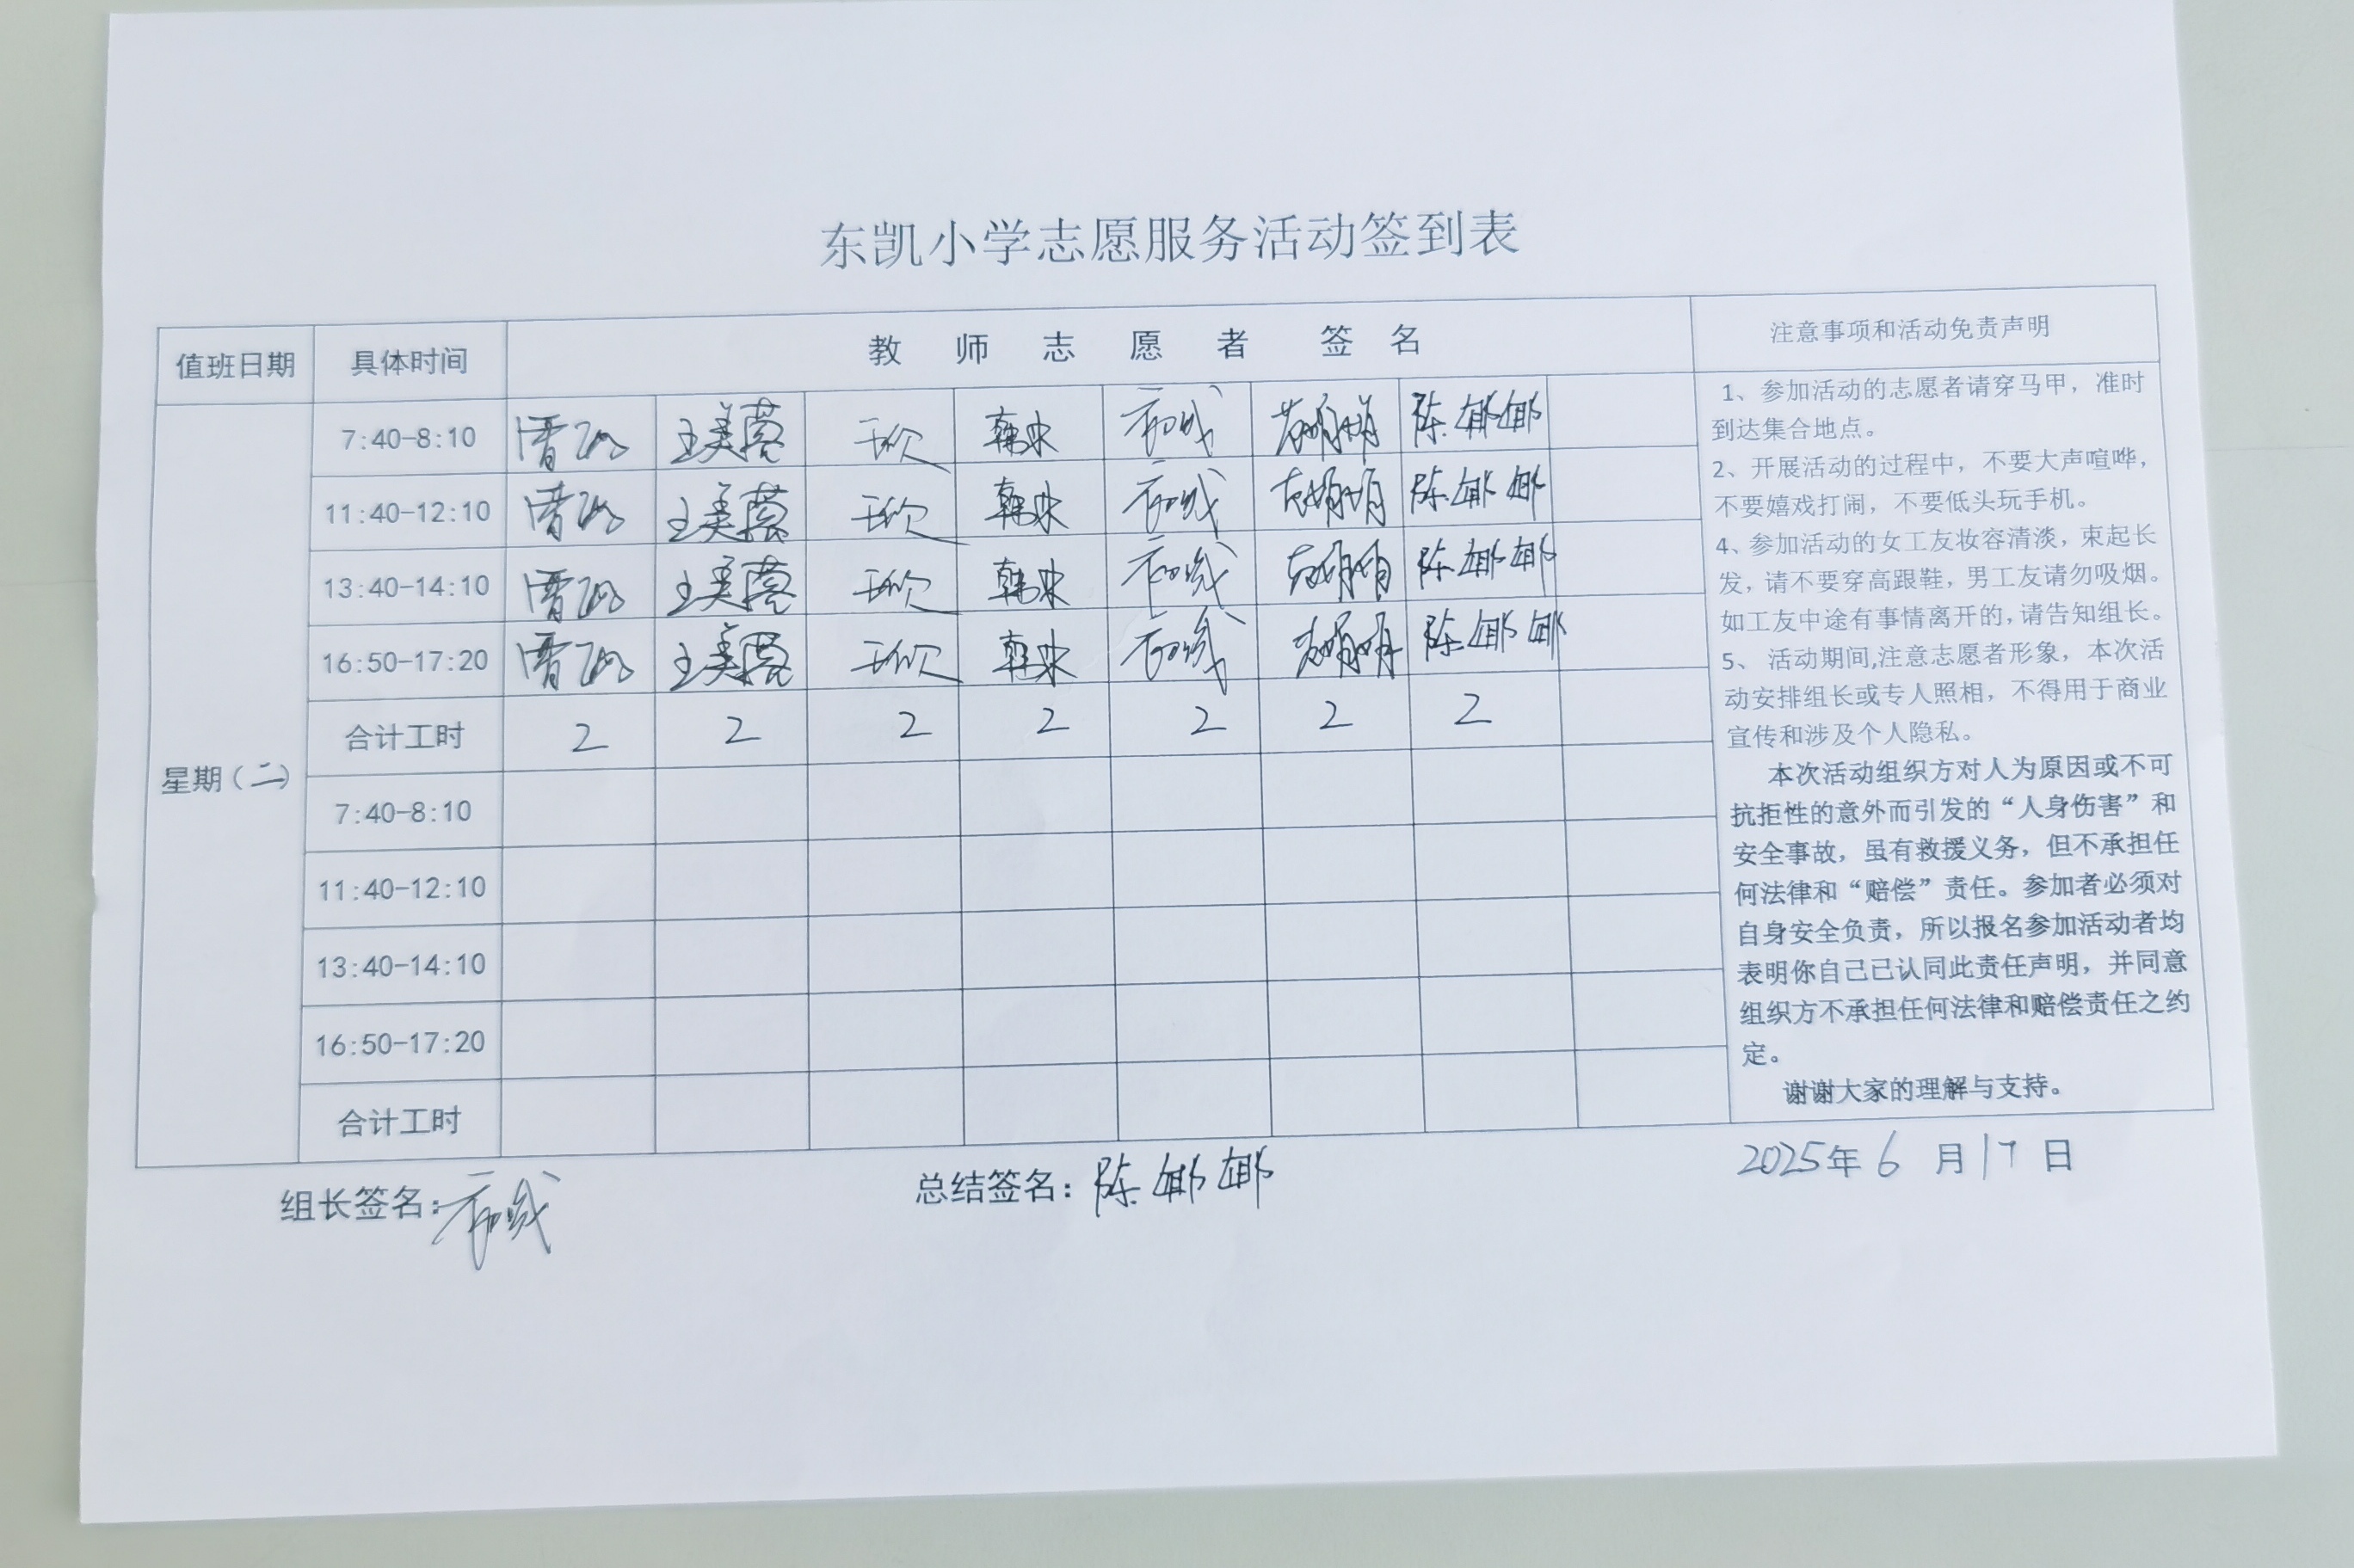 东凯小学志愿服务活动签到表
值班日期 具体时间 教 师 志 愿 者 签 名 注意事项和活动免责声明
星期（二）
7:40-8:10 王美蓉 韩史 陈娜娜
11:40-12:10 王美蓉 韩史 陈娜娜
13:40-14:10 王美蓉 韩史 陈娜娜
16:50-17:20 王美蓉 韩史 陈娜娜
合计工时 2 2 2 2 2 2 2
7:40-8:10
11:40-12:10
13:40-14:10
16:50-17:20
合计工时
1、参加活动的志愿者请穿马甲，准时
到达集合地点。
2、开展活动的过程中，不要大声喧哗，
不要嬉戏打闹，不要低头玩手机。
4、参加活动的女工友妆容清淡，束起长
发，请不要穿高跟鞋，男工友请勿吸烟。
如工友中途有事情离开的，请告知组长。
5、 活动期间,注意志愿者形象，本次活
动安排组长或专人照相，不得用于商业
宣传和涉及个人隐私。
本次活动组织方对人为原因或不可
抗拒性的意外而引发的“人身伤害”和
安全事故，虽有救援义务，但不承担任
何法律和“赔偿”责任。参加者必须对
自身安全负责，所以报名参加活动者均
表明你自己已认同此责任声明，并同意
组织方不承担任何法律和赔偿责任之约
定。
谢谢大家的理解与支持。
组长签名： 总结签名：陈娜娜 2025年6月17日